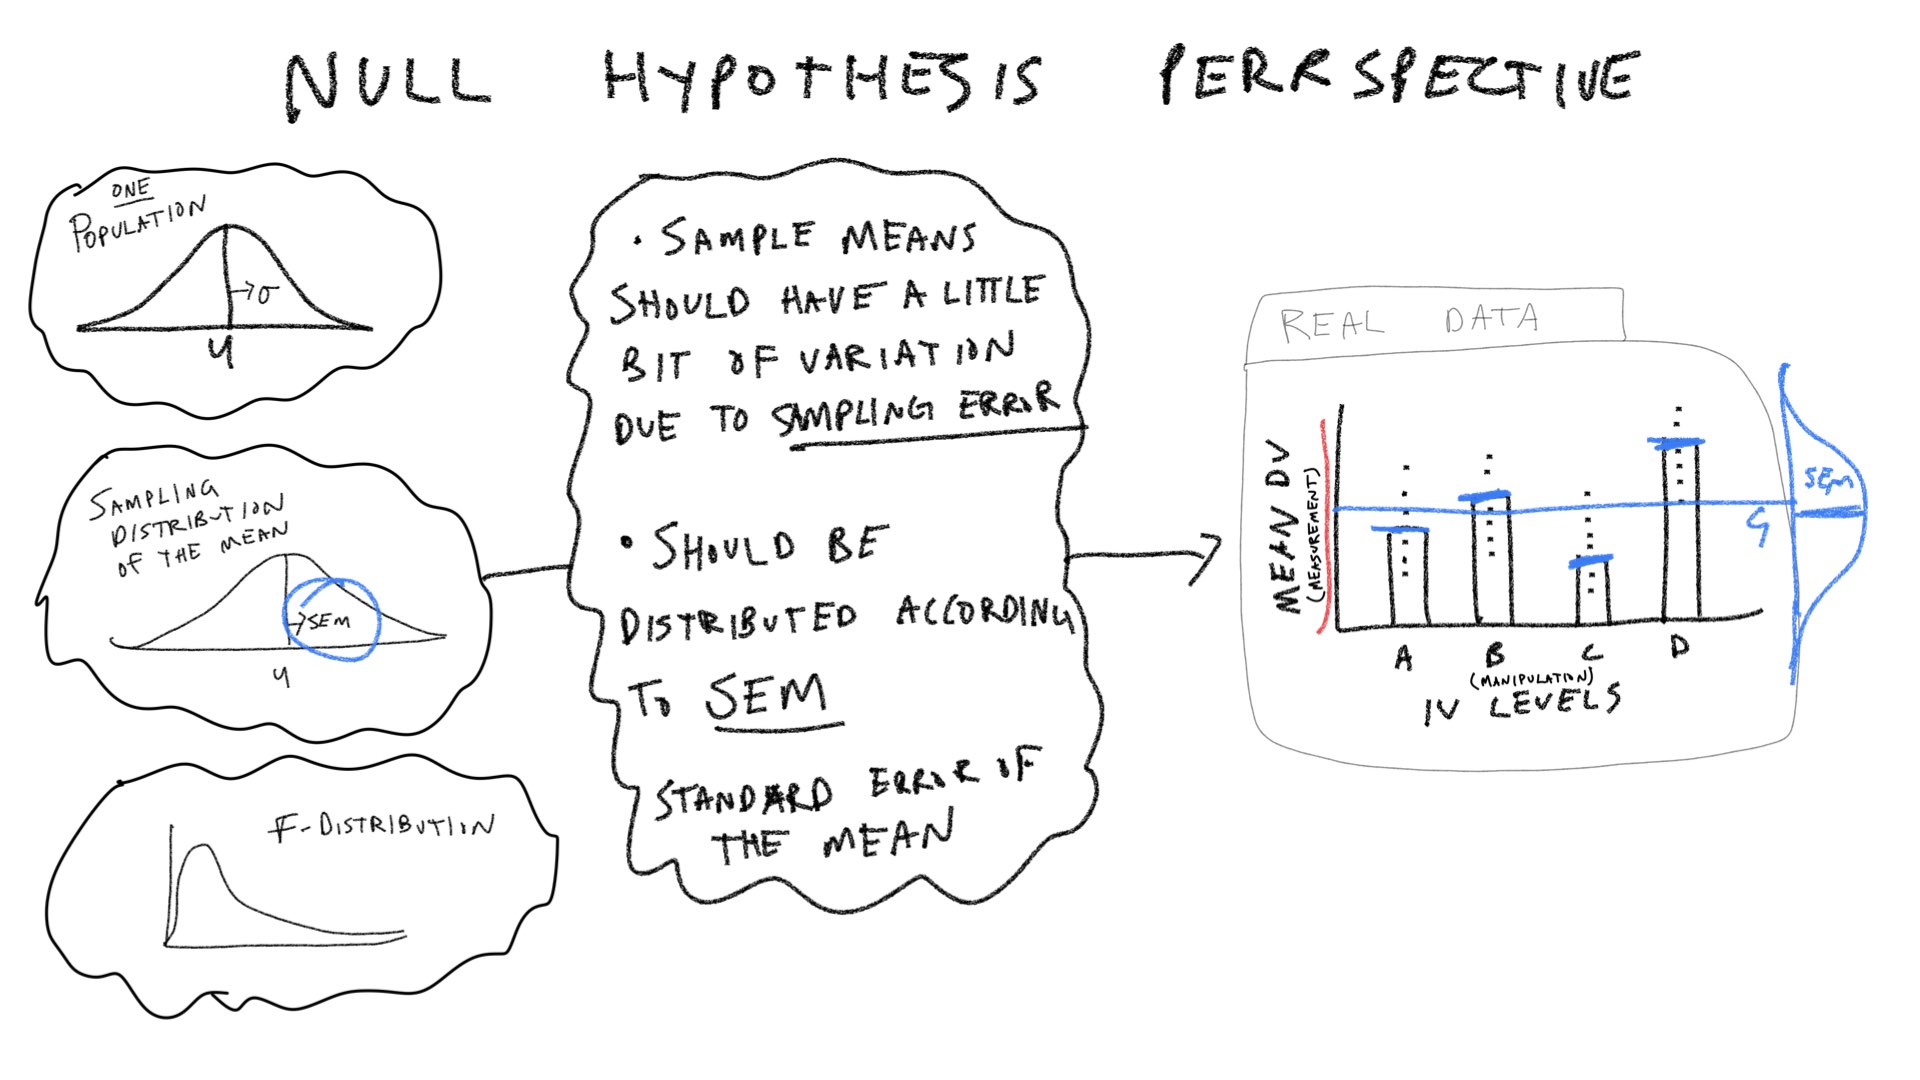 NULL HYPOTHESIS PERRSPECTIVE
ONE
POPULATION
→σ
μ
SAMPLING
DISTRIBUTION
OF THE MEAN
→SEM
μ
F-DISTRIBUTION
• SAMPLE MEANS
SHOULD HAVE A LITTLE
BIT OF VARIATION
DUE TO SAMPLING ERROR
• SHOULD BE
DISTRIBUTED ACCORDING
TO SEM
STANDARD ERROR OF
THE MEAN
REAL DATA
MEAN DV
(MEASUREMENT)
SEM
G
A B C D
(MANIPULATION)
IV LEVELS